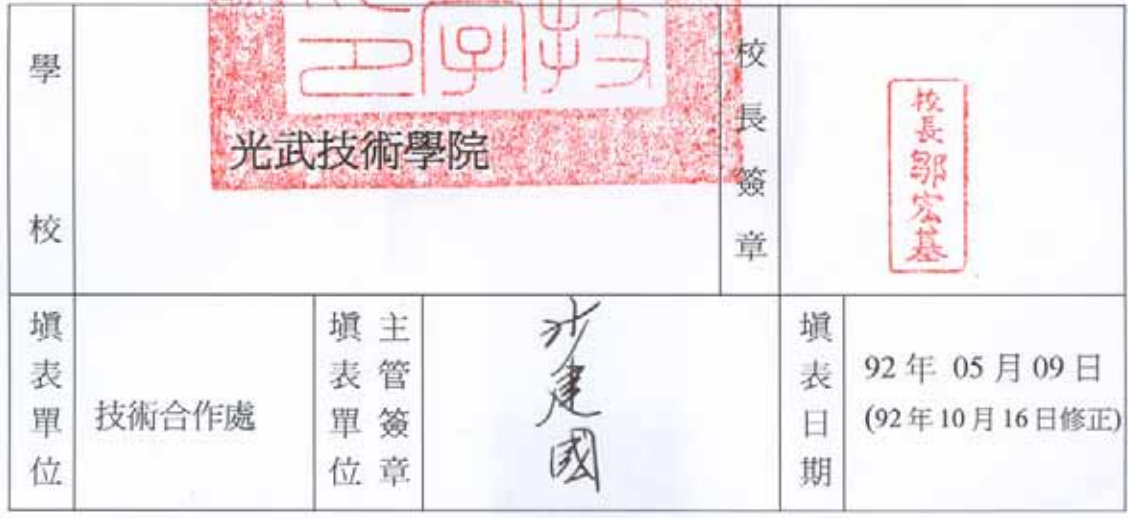 學校
光武技術學院
校長簽章
校長鄒宏基
填表單位
技術合作處
填表單位
主管簽章
沙建國
填表日期
92年 05月09日
(92年10月16日修正)